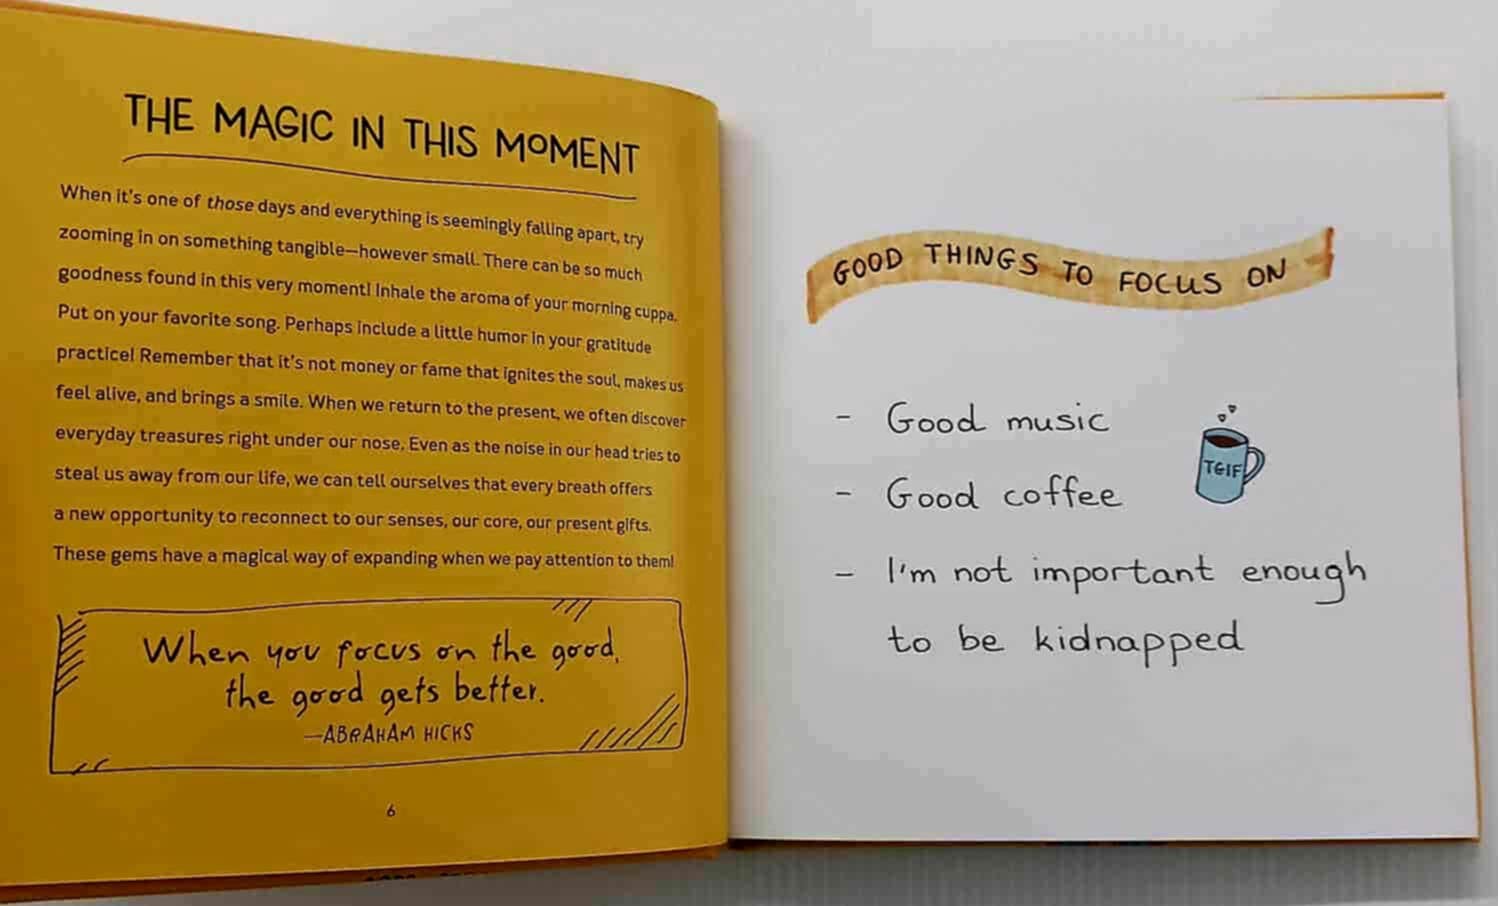 THE MAGIC IN THIS MOMENT
When it's one of those days and everything is seemingly falling apart, try
zooming in on something tangible—however small. There can be so much
goodness found in this very moment! Inhale the aroma of your morning cuppa.
Put on your favorite song. Perhaps include a little humor in your gratitude
practice! Remember that it's not money or fame that ignites the soul, makes us
feel alive, and brings a smile. When we return to the present, we often discover
everyday treasures right under our nose. Even as the noise in our head tries to
steal us away from our life, we can tell ourselves that every breath offers
a new opportunity to reconnect to our senses, our core, our present gifts.
These gems have a magical way of expanding when we pay attention to them!
When you focus on the good,
the good gets better.
—ABRAHAM HICKS
6
GOOD THINGS TO FOCUS ON
- Good music
- Good coffee
TGIF
- I'm not important enough
to be kidnapped